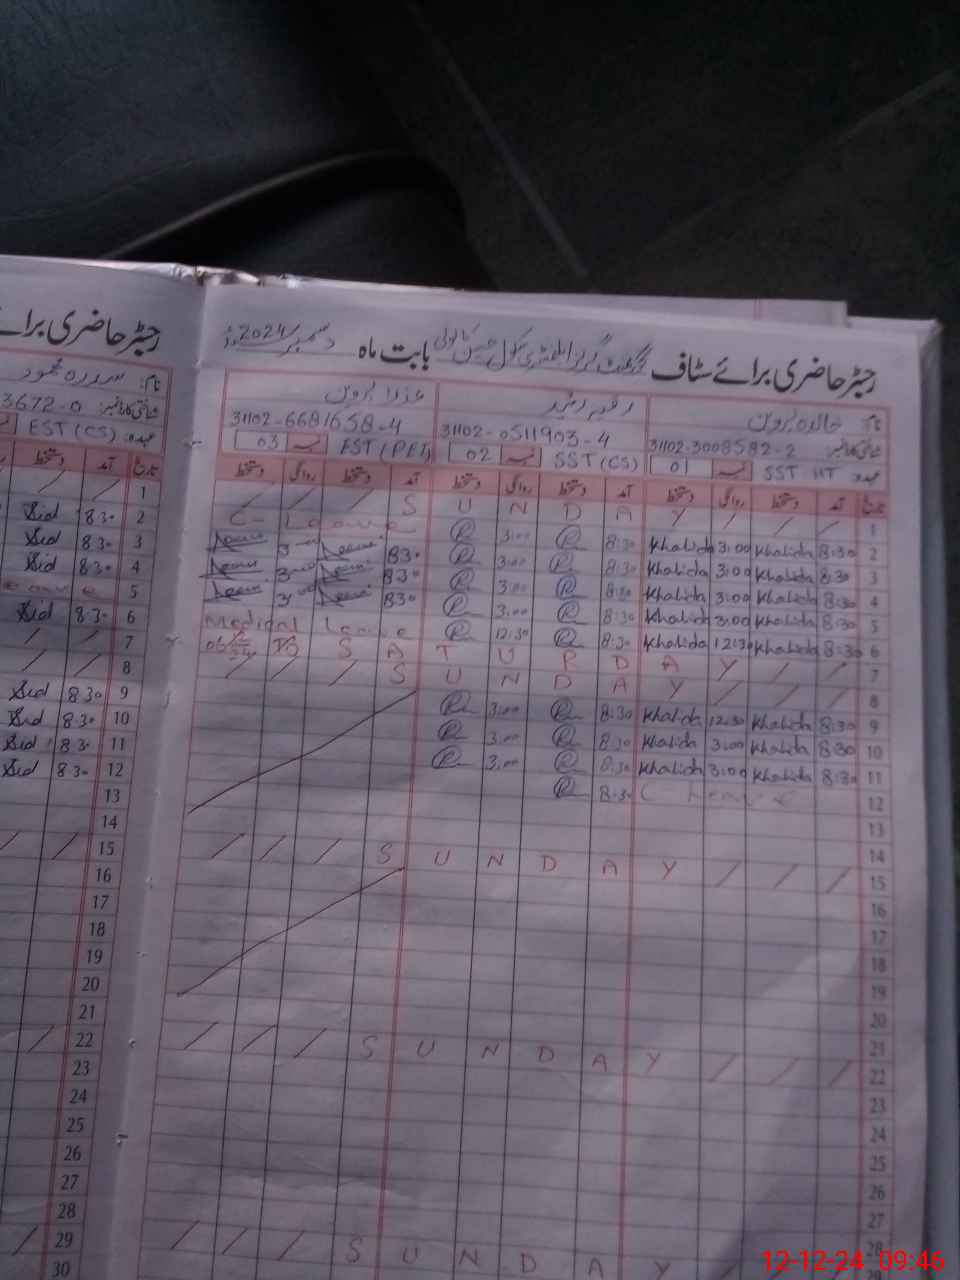 رجسٹر حاضری برائے سٹاف گورنمنٹ گرلز ایلیمنٹری سکول بابت ماہ دسمبر 2024
رجسٹر حاضری برائے
نام: خالدہ پروین
شناختی کارڈ نمبر: 31102-3008582-2
عہدہ: SST HT 01
31102-0511903-4
SST (CS) 02
عذرا پروین
31102-6681658-4
EST (PET) 03
نام: سدرہ محمود
3672-0
عہدہ: EST (CS)
تاریخ آمد دستخط روانگی دستخط آمد دستخط روانگی دستخط آمد دستخط روانگی دستخط
1 / / / S U N D A Y / / /
2 8:30 Khalida 3:00 Khalida 8:30 3:00 C- Leave
3 8:30 Khalida 3:00 Khalida 8:30 3:00 830
4 8:30 Khalida 3:00 Khalida 8:30 3:00 830
5 8:30 Khalida 3:00 Khalida 8:30 3:00 830
6 8:30 Khalida 12:30 Khalida 8:30 12:30 Medical Leave
7 / / S A T U R D A Y / / /
8 / / / S U N D A Y / / /
9 8:30 Khalida 12:30 Khalida 8:30 3:00
10 8:30 Khalida 3:00 Khalida 8:30 3:00
11 8:30 Khalida 3:00 Khalida 8:30 3:00
12 C- Leave 8:30
13
14
15 / / / S U N D A Y / / /
16
17
18
19
20
21
22 / / / S U N D A Y / / /
23
24
25
26
27
28
S U N D A Y
تاریخ آمد دستخط
1 / /
2 8:30 Sid
3 8:30 Sid
4 8:30 Sid
5
6 8:30 Sid
7 / /
8 / /
9 8:30 Sid
10 8:30 Sid
11 8:30 Sid
12 8:30 Sid
13
14
15 / /
16
17
18
19
20
21
22 /
23
24
25
26
27
28
29 /
30
12-12-24 09:46